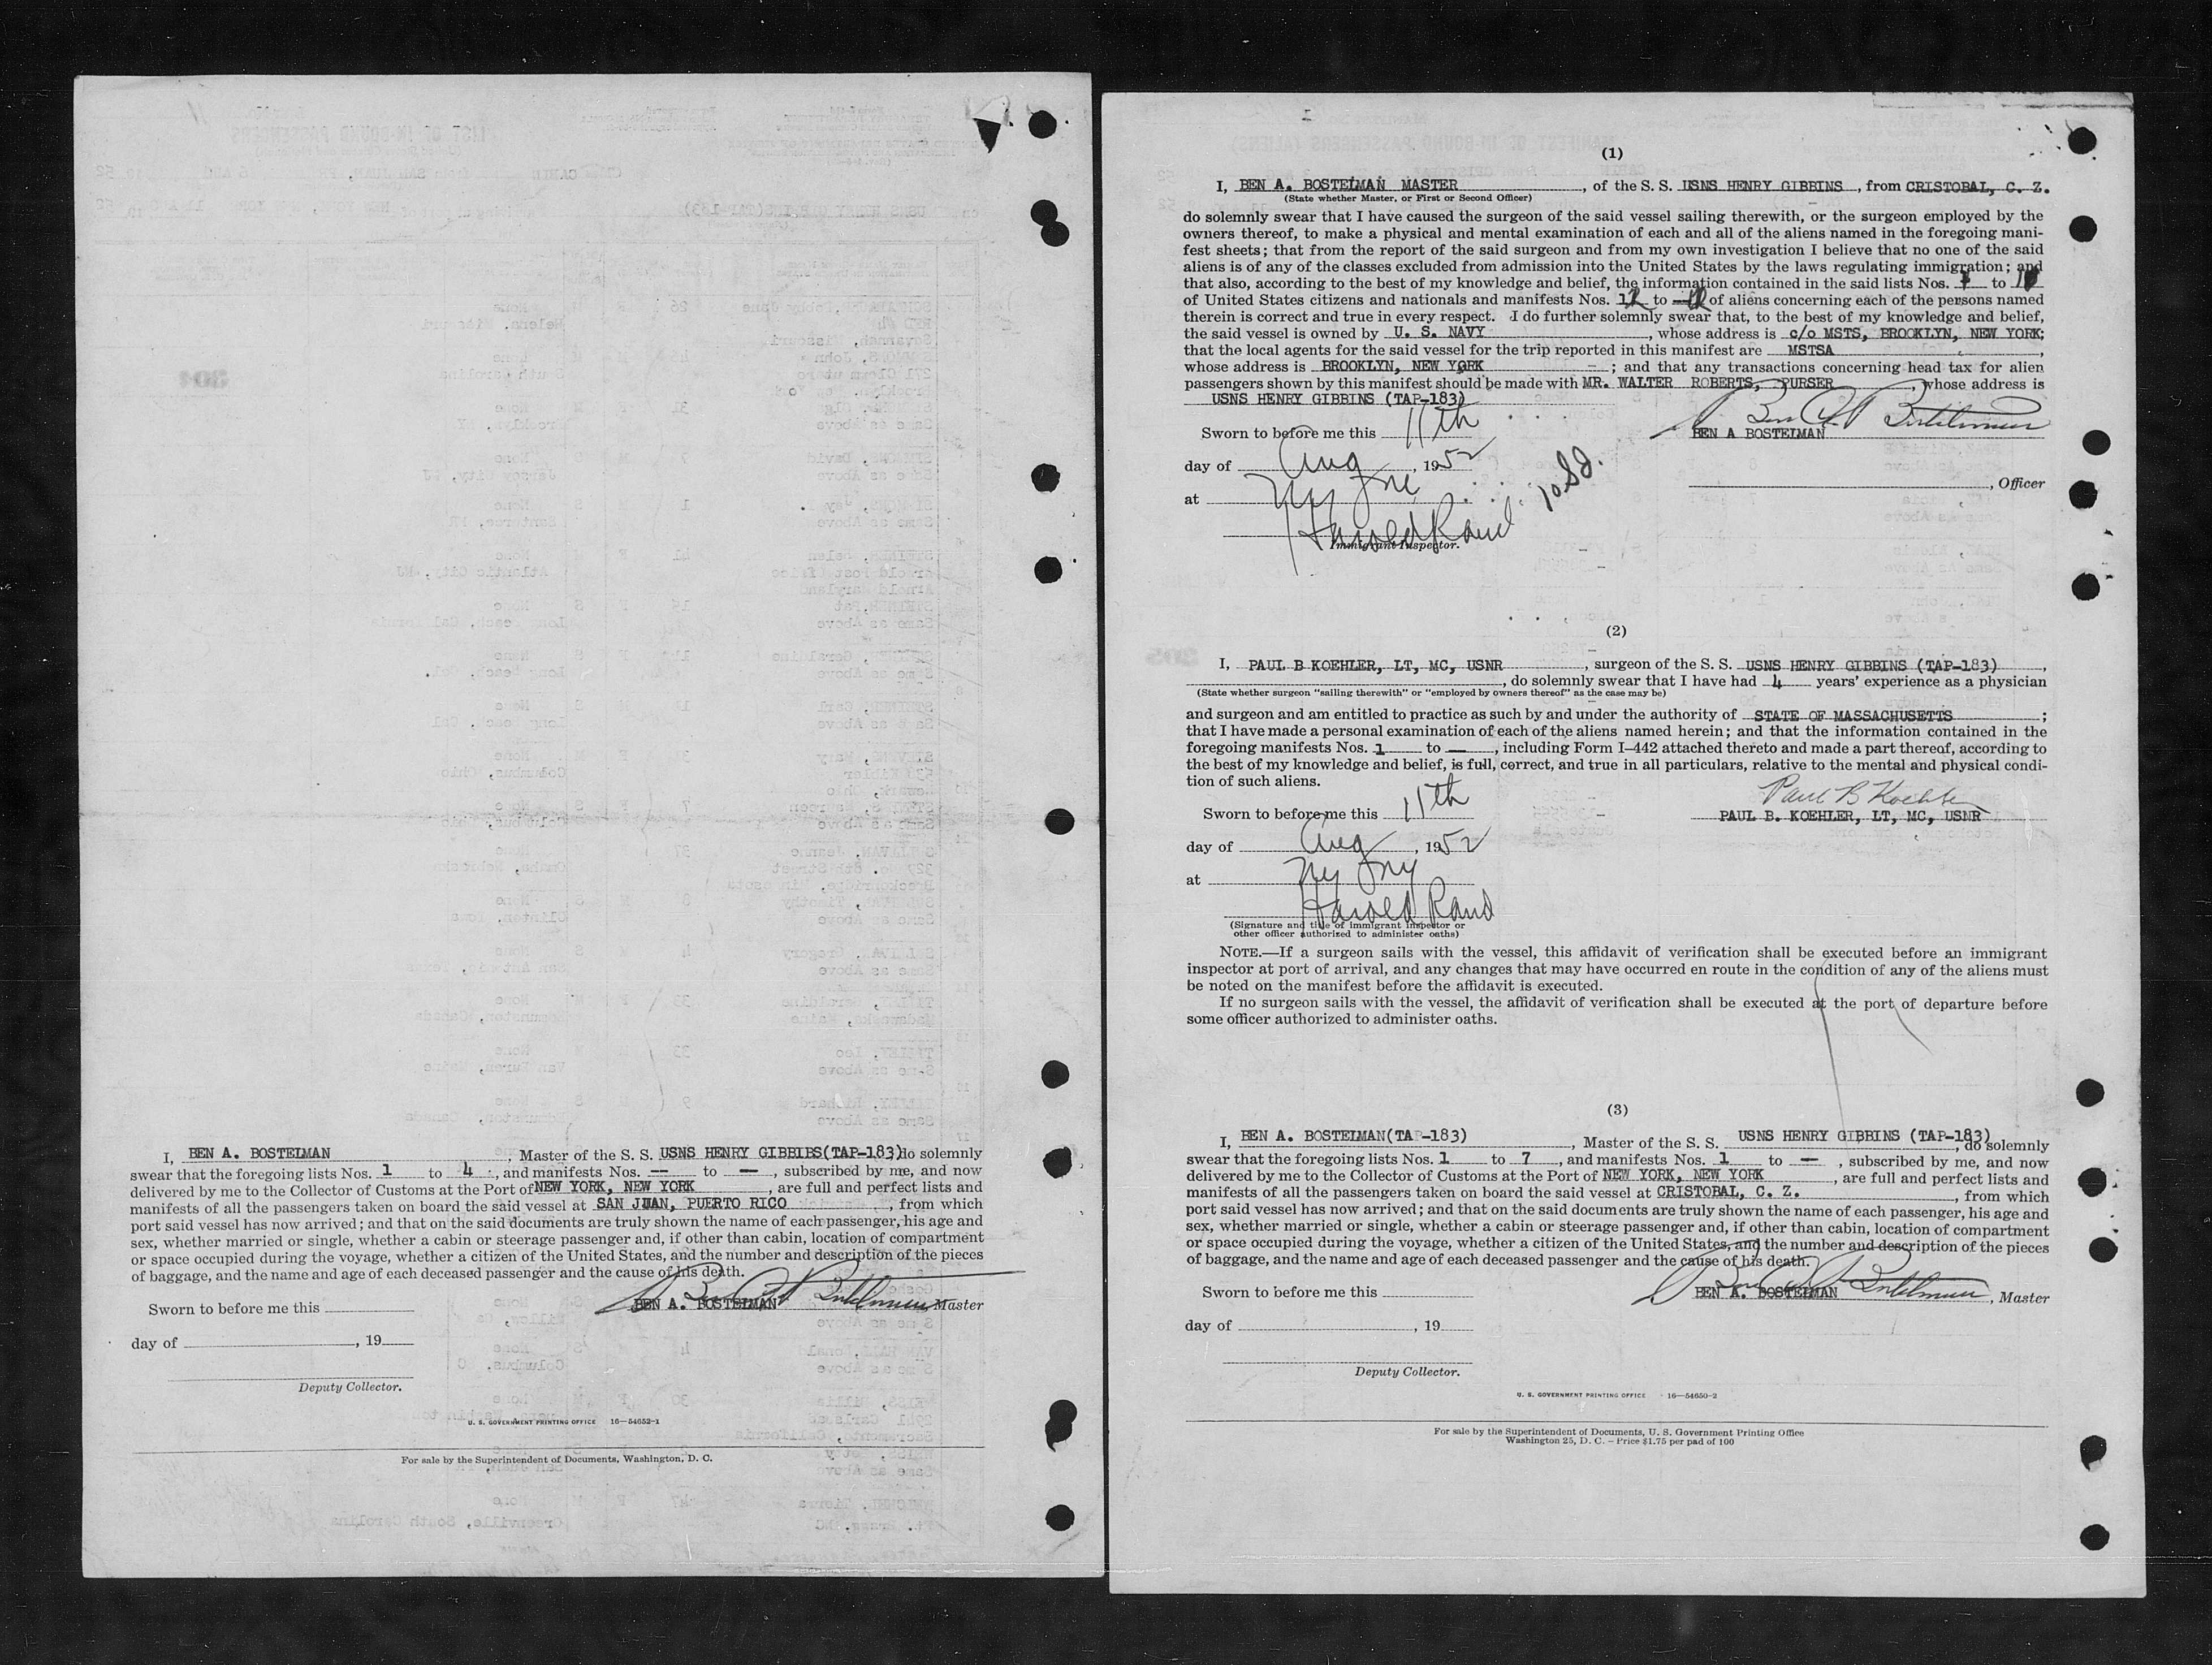 I, BEN A. BOSTELMAN, Master of the S. S. USNS HENRY GIBBIBS(TAP-183)do solemnly
swear that the foregoing lists Nos. 1 to 4, and manifests Nos. -- to —, subscribed by me, and now
delivered by me to the Collector of Customs at the Port of NEW YORK, NEW YORK, are full and perfect lists and
manifests of all the passengers taken on board the said vessel at SAN JUAN, PUERTO RICO, from which
port said vessel has now arrived; and that on the said documents are truly shown the name of each passenger, his age and
sex, whether married or single, whether a cabin or steerage passenger and, if other than cabin, location of compartment
or space occupied during the voyage, whether a citizen of the United States, and the number and description of the pieces
of baggage, and the name and age of each deceased passenger and the cause of his death.
Sworn to before me this
BEN A. BOSTELMAN, Master
day of , 19
Deputy Collector.
U. S. GOVERNMENT PRINTING OFFICE 16—54652-1
For sale by the Superintendent of Documents, Washington, D. C.
(1)
I, BEN A. BOSTELMAN MASTER, of the S. S. USNS HENRY GIBBINS, from CRISTOBAL, C. Z.
(State whether Master, or First or Second Officer)
do solemnly swear that I have caused the surgeon of the said vessel sailing therewith, or the surgeon employed by the
owners thereof, to make a physical and mental examination of each and all of the aliens named in the foregoing mani-
fest sheets; that from the report of the said surgeon and from my own investigation I believe that no one of the said
aliens is of any of the classes excluded from admission into the United States by the laws regulating immigration; and
that also, according to the best of my knowledge and belief, the information contained in the said lists Nos. to
of United States citizens and nationals and manifests Nos. 12 to of aliens concerning each of the persons named
therein is correct and true in every respect. I do further solemnly swear that, to the best of my knowledge and belief,
the said vessel is owned by U. S. NAVY, whose address is c/o MSTS, BROOKLYN, NEW YORK;
that the local agents for the said vessel for the trip reported in this manifest are MSTSA,
whose address is BROOKLYN, NEW YORK; and that any transactions concerning head tax for alien
passengers shown by this manifest should be made with MR. WALTER ROBERTS, PURSER, whose address is
USNS HENRY GIBBINS (TAP-183)
Ben A Bostelman
Sworn to before me this 11th
BEN A BOSTELMAN
day of Aug, 1952
, Officer
at NY NY
Harold Rand
Immigrant Inspector.
(2)
I, PAUL B KOEHLER, LT, MC, USNR, surgeon of the S. S. USNS HENRY GIBBINS (TAP-183),
, do solemnly swear that I have had 4 years' experience as a physician
(State whether surgeon "sailing therewith" or "employed by owners thereof" as the case may be)
and surgeon and am entitled to practice as such by and under the authority of STATE OF MASSACHUSETTS;
that I have made a personal examination of each of the aliens named herein; and that the information contained in the
foregoing manifests Nos. 1 to —, including Form I-442 attached thereto and made a part thereof, according to
the best of my knowledge and belief, is full, correct, and true in all particulars, relative to the mental and physical condi-
tion of such aliens.
Paul B Koehler
Sworn to before me this 11th
PAUL B. KOEHLER, LT, MC, USNR
day of Aug, 1952
at NY NY
Harold Rand
(Signature and title of immigrant inspector or
other officer authorized to administer oaths)
NOTE.—If a surgeon sails with the vessel, this affidavit of verification shall be executed before an immigrant
inspector at port of arrival, and any changes that may have occurred en route in the condition of any of the aliens must
be noted on the manifest before the affidavit is executed.
If no surgeon sails with the vessel, the affidavit of verification shall be executed at the port of departure before
some officer authorized to administer oaths.
(3)
I, BEN A. BOSTELMAN(TAP-183), Master of the S. S. USNS HENRY GIBBINS (TAP-183), do solemnly
swear that the foregoing lists Nos. 1 to 7, and manifests Nos. 1 to —, subscribed by me, and now
delivered by me to the Collector of Customs at the Port of NEW YORK, NEW YORK, are full and perfect lists and
manifests of all the passengers taken on board the said vessel at CRISTOBAL, C. Z., from which
port said vessel has now arrived; and that on the said documents are truly shown the name of each passenger, his age and
sex, whether married or single, whether a cabin or steerage passenger and, if other than cabin, location of compartment
or space occupied during the voyage, whether a citizen of the United States, and the number and description of the pieces
of baggage, and the name and age of each deceased passenger and the cause of his death.
Sworn to before me this
BEN A. BOSTELMAN, Master
day of , 19
Deputy Collector.
U. S. GOVERNMENT PRINTING OFFICE 16—54650-2
For sale by the Superintendent of Documents, U. S. Government Printing Office
Washington 25, D. C. - Price $1.75 per pad of 100